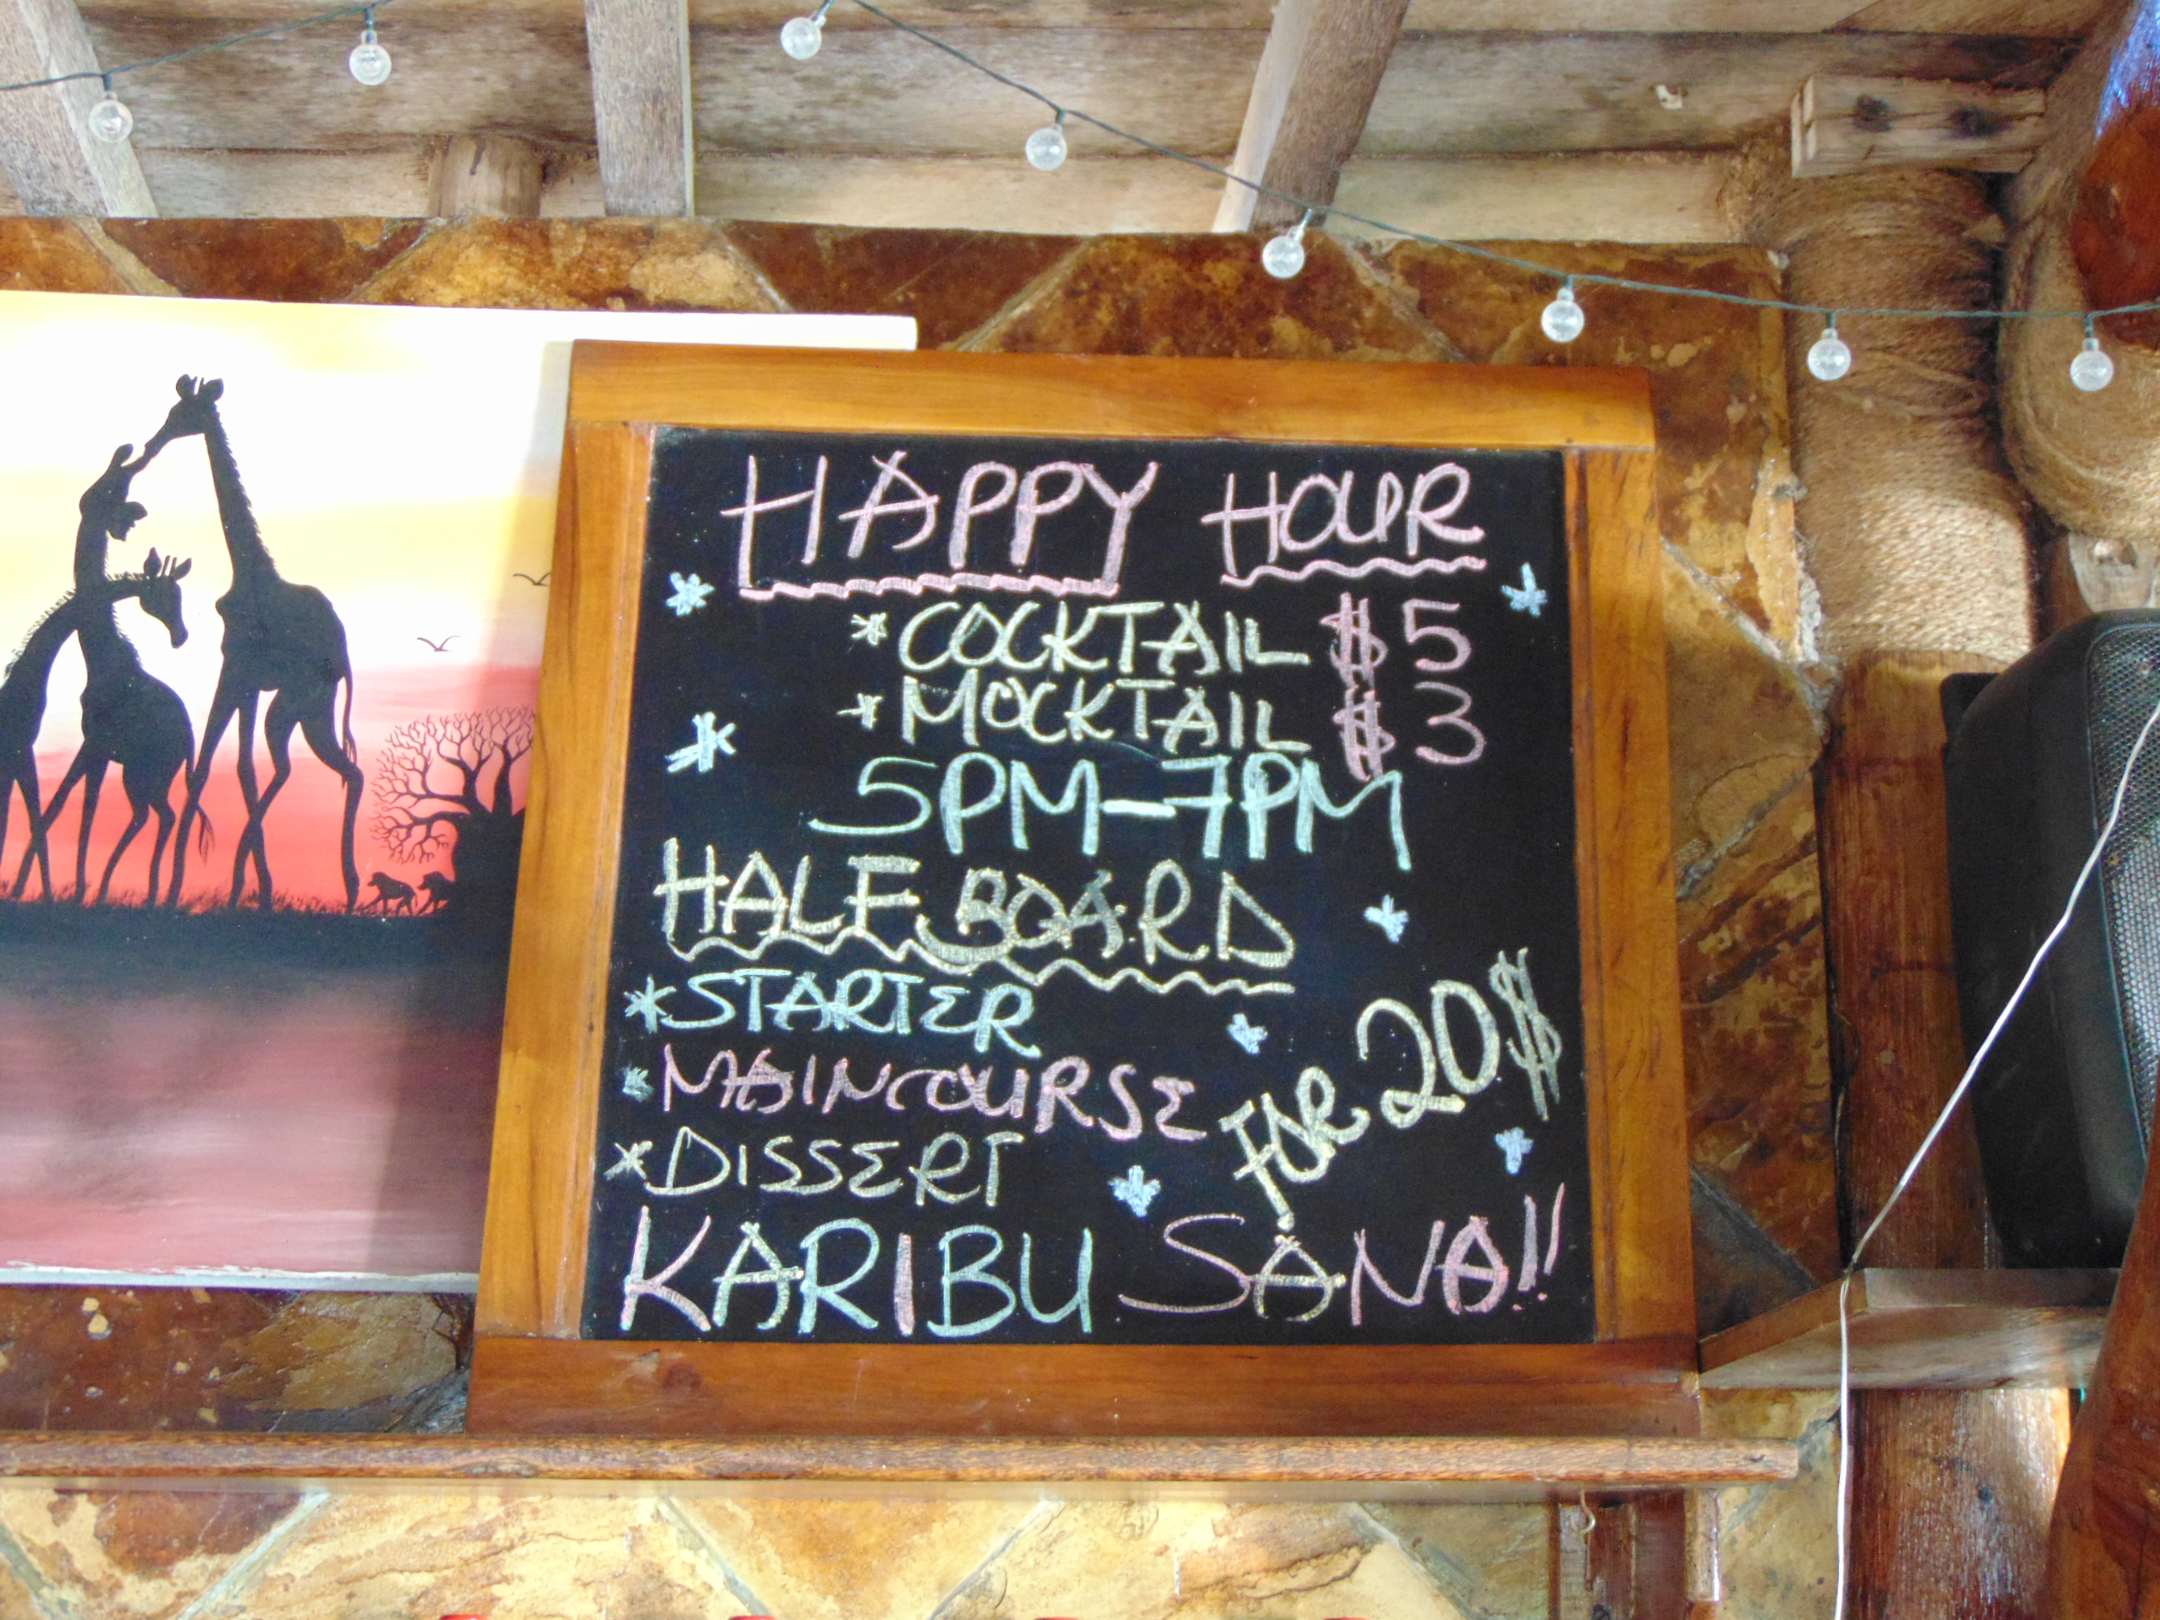 HAPPY HOUR
* COCKTAIL $ 5
* MOCKTAIL $ 3
5PM-7PM
HALF BOARD
* STARTER
* MAINCOURSE
* DISSERT
FOR 20$
KARIBU SANA!!